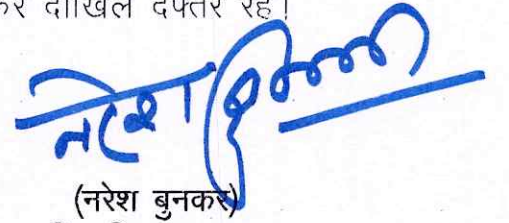 दाखिल दफ्तर रहे।
नरेश
(नरेश बुनकर)